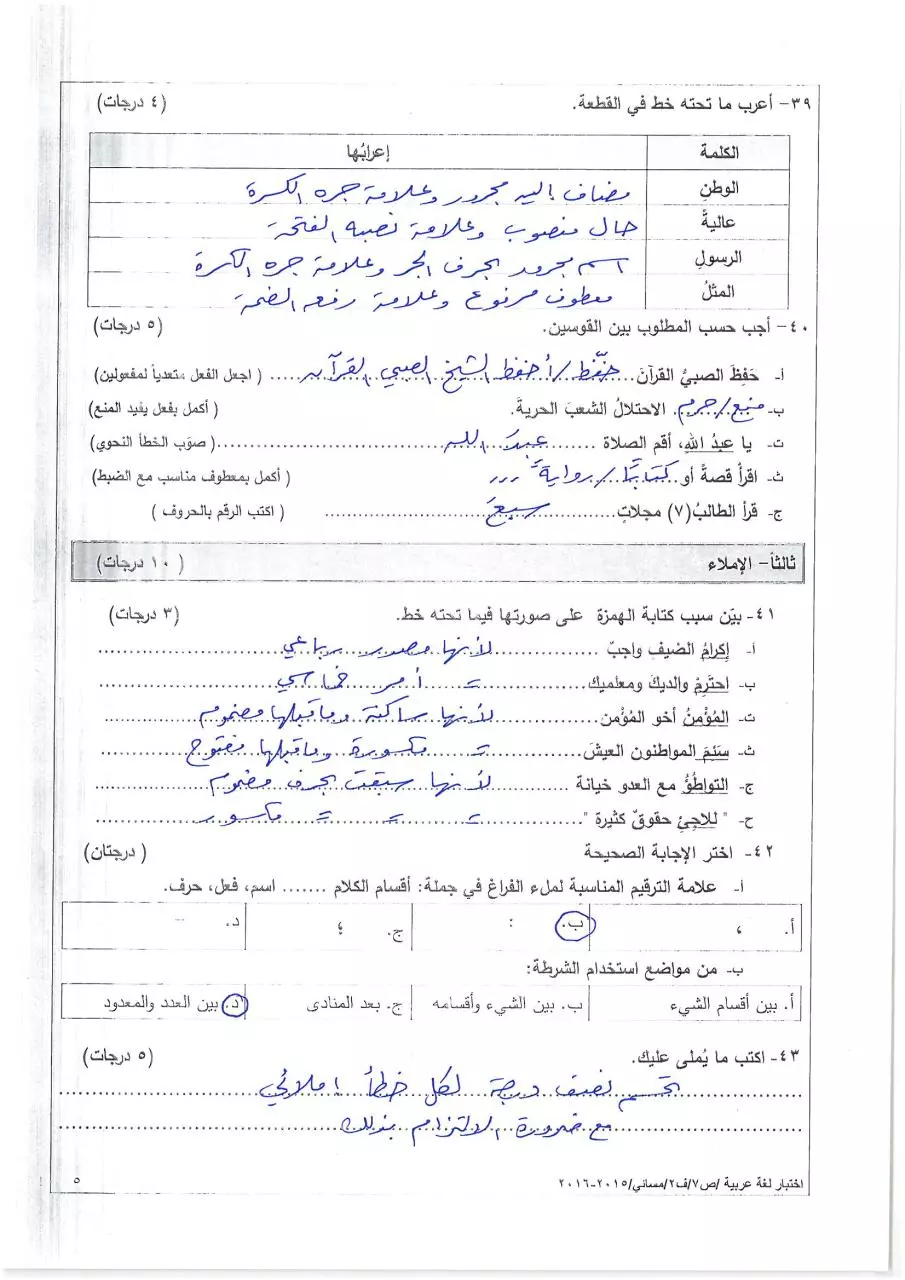 ٣٩- أعرب ما تحته خط في القطعة. (٤ درجات)
الكلمة إعرابُها
الوطنِ مضاف إليه مجرور وعلامة جره الكسرة
عاليةً حال منصوب وعلامة نصبه الفتحة
الرسولِ اسم مجرور بحرف الجر وعلامة جره الكسرة
المثلُ معطوف مرفوع وعلامة رفعه الضمة
٤٠- أجب حسب المطلوب بين القوسين. (٥ درجات)
أ- حَفِظَ الصبيُّ القرآنَ حفّظ/أحفظ الشيخ الصبي القرآن (اجعل الفعل متعدياً لمفعولين)
ب- منع/حرم الاحتلالُ الشعبَ الحريةَ. (أكمل بفعل يفيد المنع)
ت- يا عبدُ اللهِ، أقم الصلاة عبدَ الله (صوّب الخطأ النحوي)
ث- اقرأ قصةً أو كتابًا/روايةً ... (أكمل بمعطوف مناسب مع الضبط)
ج- قرأ الطالبُ (٧) مجلاتٍ سبعَ (اكتب الرقم بالحروف)
ثالثاً- الإملاء (١٠ درجات)
٤١- بيّن سبب كتابة الهمزة على صورتها فيما تحته خط. (٣ درجات)
أ- إكرامُ الضيف واجبٌ لأنها مصدر رباعي
ب- احترِمْ والديكَ ومعلميك = أمر خماسي
ت- المُؤْمنُ أخو المُؤْمن لأنها ساكنة وما قبلها مضموم
ث- سَئِمَ المواطنون العيشَ = مكسورة وما قبلها مفتوح
ج- التواطُؤُ مع العدو خيانة لأنها سبقت بحرف مضموم
ح- " للاجِئِ حقوقٌ كثيرة " = = = مكسور
٤٢- اختر الإجابة الصحيحة (درجتان)
أ- علامة الترقيم المناسبة لملء الفراغ في جملة: أقسام الكلام ....... اسم، فعل، حرف.
أ. ، ب. : ج. ؛ د. -
ب- من مواضع استخدام الشرطة:
أ. بين أقسام الشيء ب. بين الشيء وأقسامه ج. بعد المنادى د. بين العدد والمعدود
٤٣- اكتب ما يُملى عليك. (٥ درجات)
تخسم نصف درجة لكل خطأ إملائي
مع ضرورة الالتزام بذلك
اختبار لغة عربية /ص٧/ف٢/مسائي/٢٠١٥-٢٠١٦ ٥